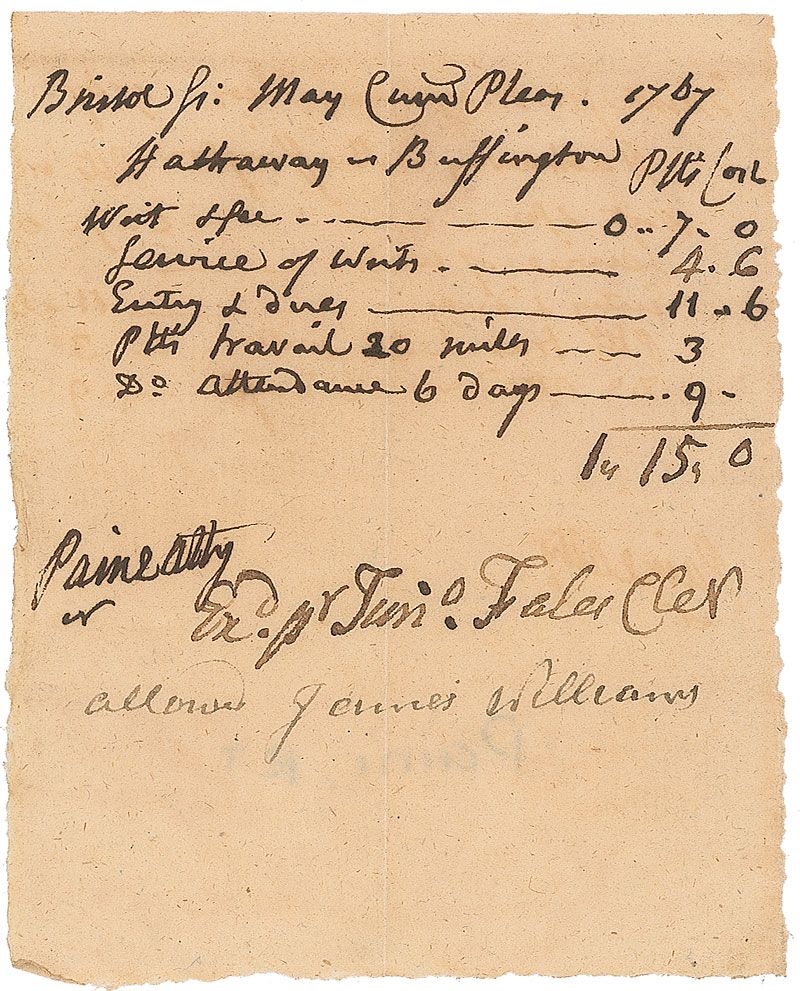 Bristol Ss: May Com̄ Pleas. 1767
Hathaway vs Buffington Pltfs Cost
Writ &fee - 0..7.. 0
Service of Writs. 4. 6
Entry & dues 11.. 6
Pltfs travail 20 miles 3
Do attendance 6 days . 9 -
1,, 15,, 0
Paine Atty
Exd. pr Timo. Fales Cler
allowd James Williams